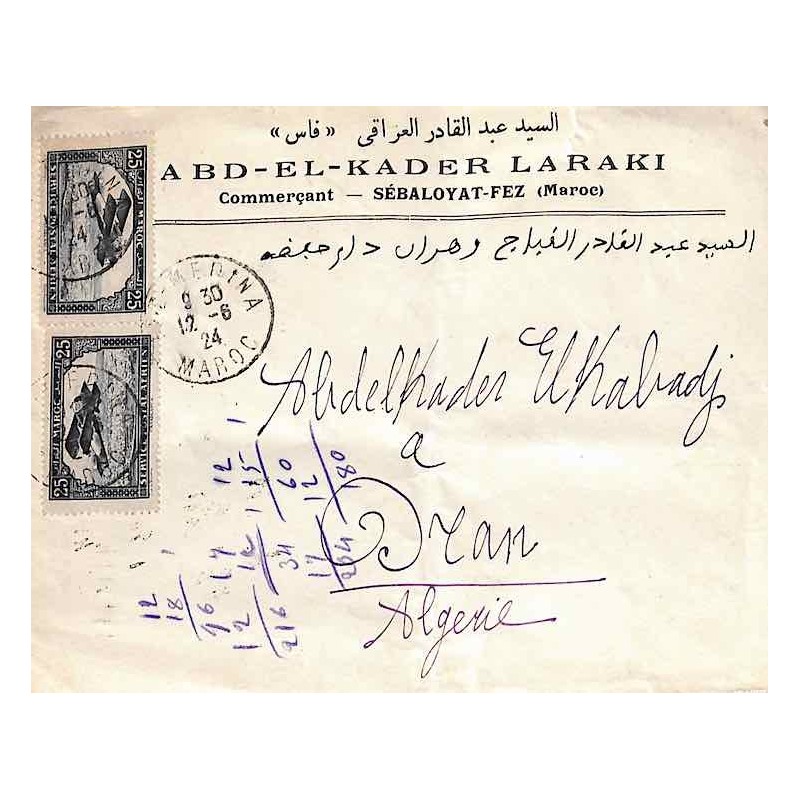 السيد عبد القادر العراقى «فاس»
ABD-EL-KADER LARAKI
Commerçant — SÉBALOYAT-FEZ (Maroc)
السيد عبد القادر القباج وهران دار
25 MAROC 25
25 MAROC 25
MEDINA
9 30
12 -6
24
MAROC
Abdelkader El Kabadj
a
Oran
Algerie
12
15
60
12
180
17
12
34
17
204
12
18
96
12
216